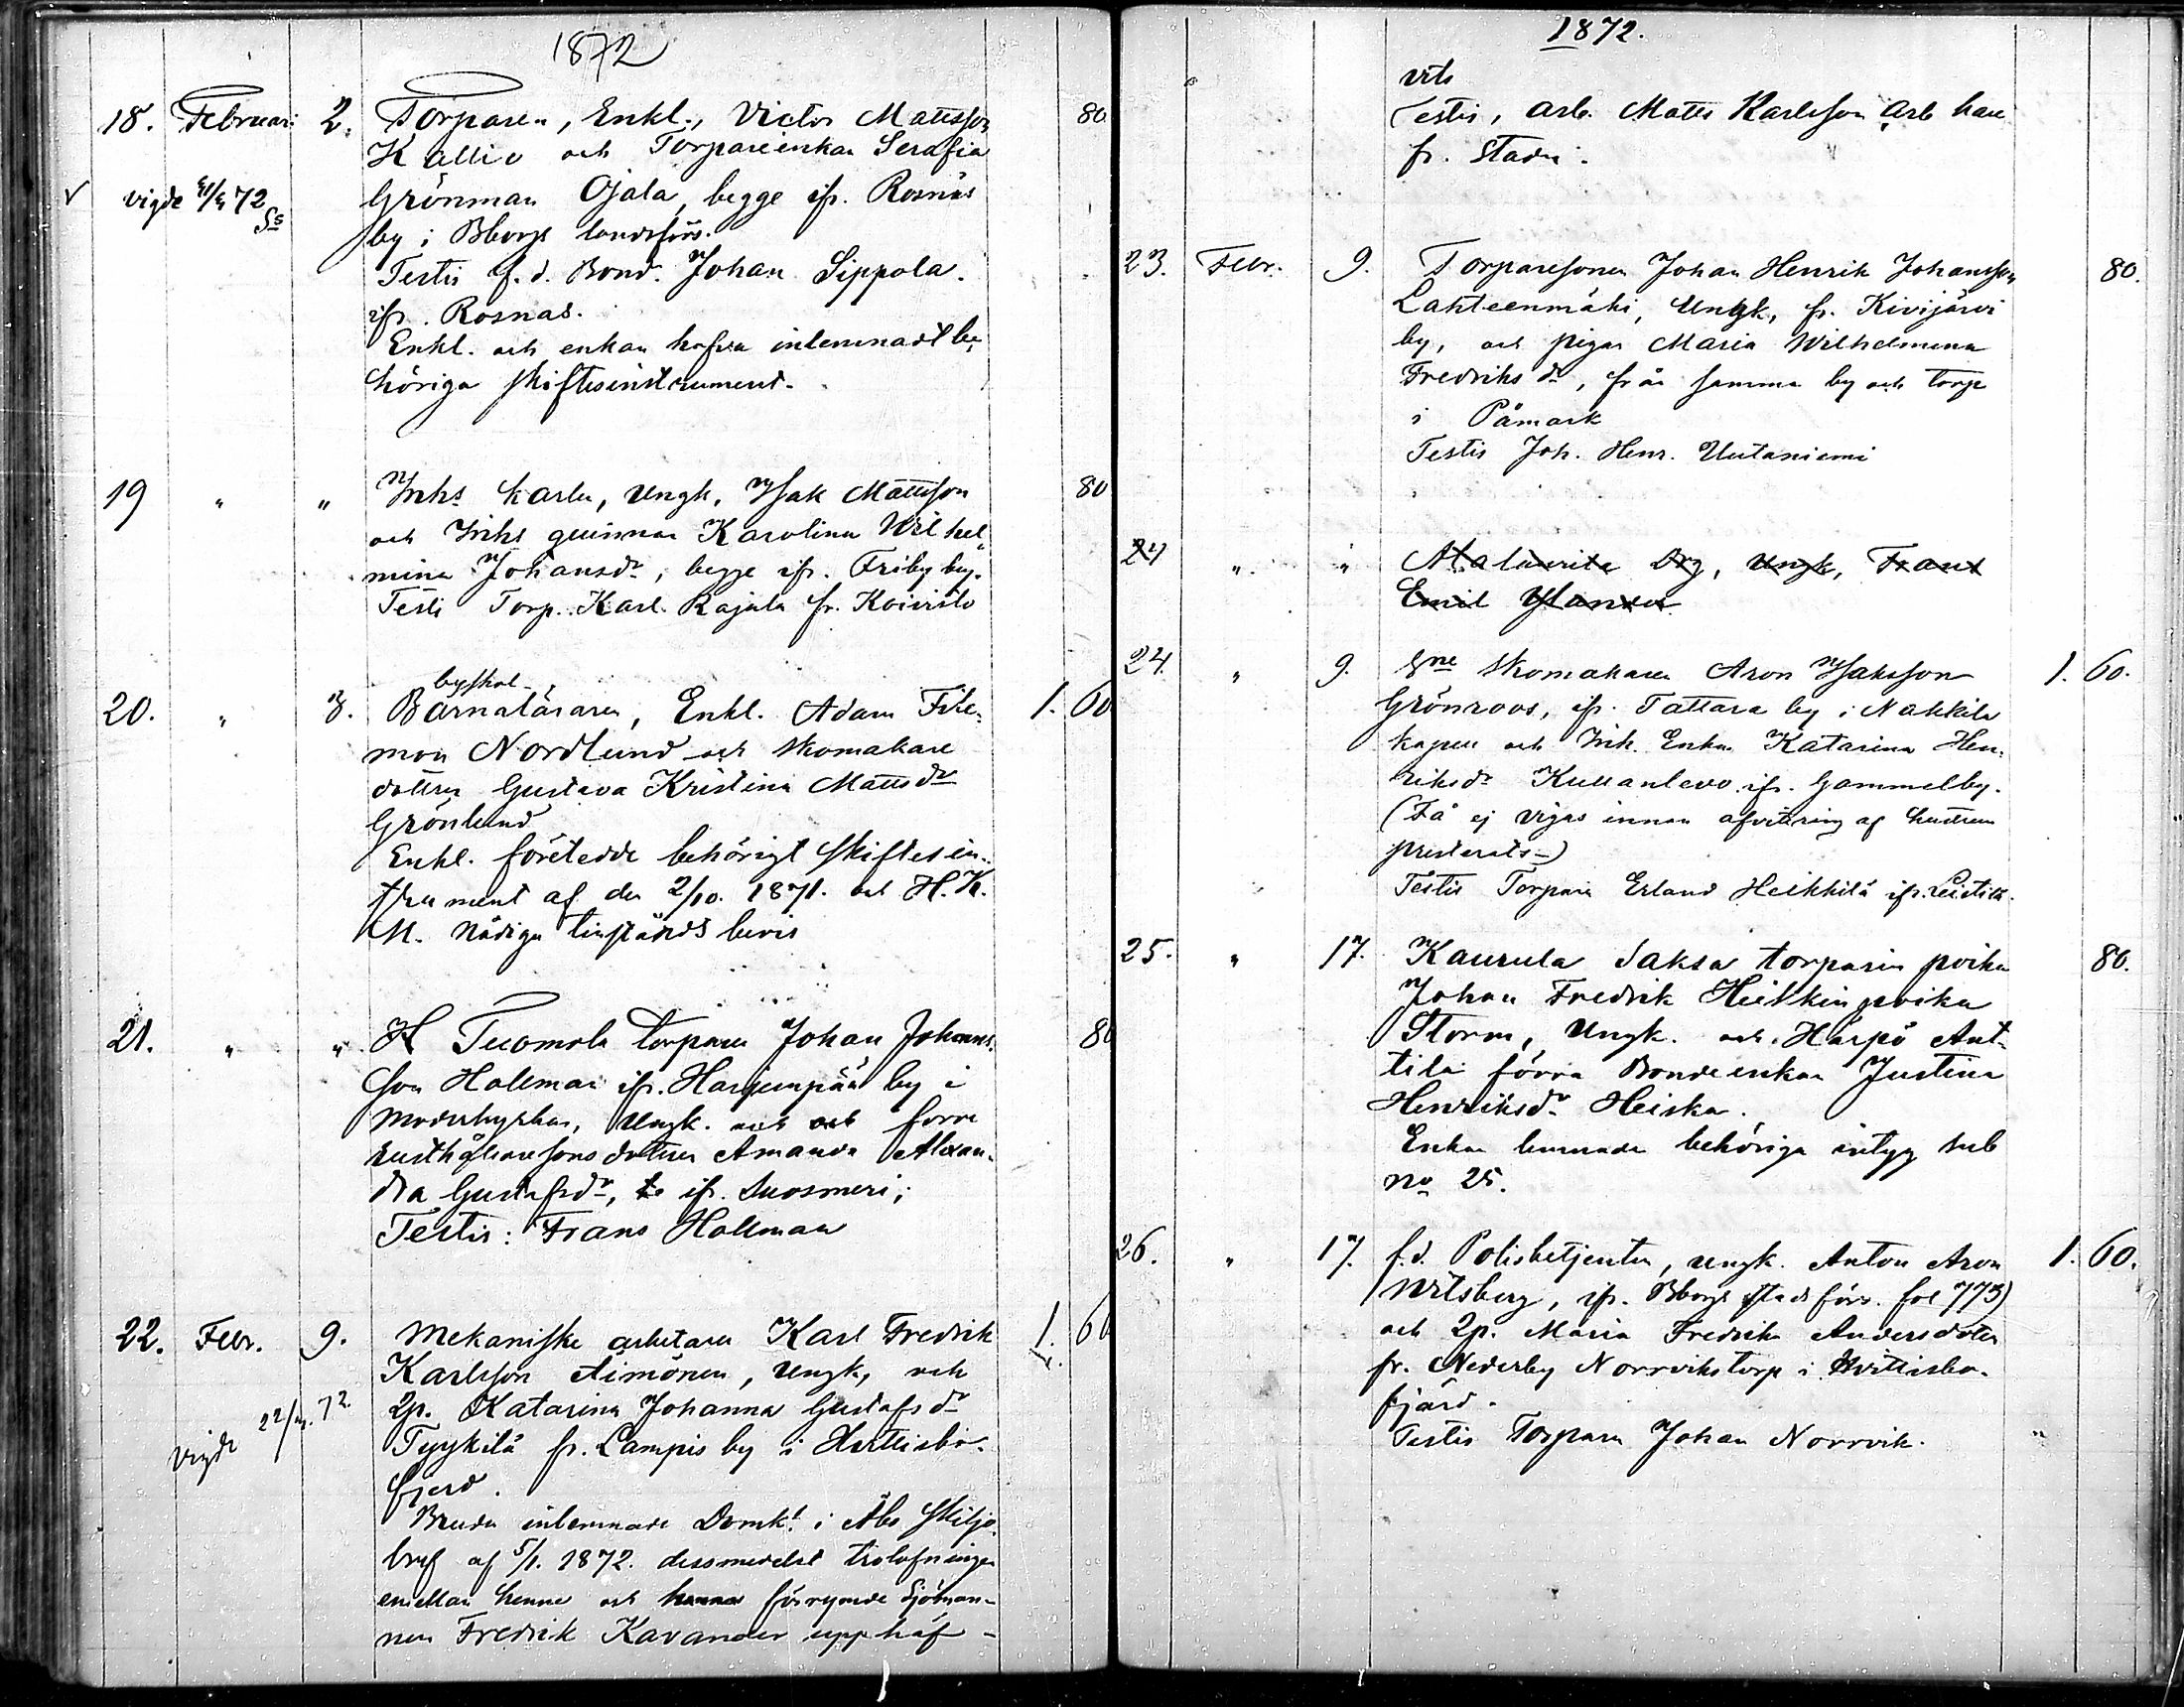 1872
18. Februari 2. Torparen, Enkl., Victor Mattsson 80
Kallio och Torpareenkan Serafia
vigde 72 Grönman Ojala, begge ifr. Rosnäs
by i Bborgs landsförs.
Testis f.d. Bond. Johan Sippola.
ifr. Rosnäs.
Enkl. och enkan hafva inlemnadt be
höriga skiftesinstrument.
19 " " Inhs karlen, Ungk, Isak Mattsson 80
och Inhs qvinnan Karolina Wilhel
mina Johansdr, begge ifr. Friby by.
Testi Torp. Karl Rajala fr. Koivisto
byskol
20. " 3. Barnaläraren, Enkl. Adam File- 1. 60
mon Nordlund och skomakare
dottren Gustava Kristina Mattsdr
Grönlund
Enkl. företedde behörigt skiftesin-
strument af den 2/10. 1871. och H.K.
M. Nådiga tillstånds bevis
21. " " Tuomola torparen Johan Johans 80
son Hollman ifr. Harjunpää by i
Moderkyrkan, Ungk. och och förre
rusthållaresons dottren Amanda Alexan-
dra Gustafsdr, ifr. Suosmeri;
Testis: Frans Hollman
22. Febr. 9. Mekaniske arbetaren Karl Fredrik 1. 60
Karlsson Aimonen, Ungk, och
vigde 22/ 72 2p. Katarina Johanna Gustafsdr
Tyykilä fr. Lampis by i Hvittisbo-
fjerd.
Bruden inlemnade Domk. i Åbo skiljo
bref af 5/1. 1872. dessmedelst trolofningen
emellan henne och förrymde Sjöman-
nen Fredrik Kavander upphäf-
1872.
vits
Testis, arb. Matts Karlsson arb kare
fr. staden.
23. Febr. 9. Torparesonen Johan Henrik Johansson 80.
Lahteenmäki, Ungk, fr. Kivijärvi
by, och pigan Maria Wilhelmina
Fredriksdr, från samma by och torp
i Påmark
Testis Joh. Henr. Uutaniemi
24 " " Ungk, Frans
Emil
24. " 9. Skomakaren Aron Isaksson 1. 60.
Grönroos, ifr. Tattara by i Nakkila
kapell och Inh. Enkan Katarina Hen-
riksdr Kullanlevo ifr. Gammelby.
(Få ej vigas innan afvittring af hustrun
presterats-)
Testis Torpare Erland Heikkilä ifr. Leistilä.
25. " 17. Kaurula Saksa torparin poika 80.
Johan Fredrik Heikkinpoika
Storm, Ungk. och Härpö Ant-
tila förra Bondeenkan Justina
Henriksdr Heiska.
Enkan lemnade behöriga intyg sub
no 25.
26. " 17. f.d. Polisbetjenten, ungk. Anton Aron 1. 60.
Witsberg, ifr. Bborgs stads förs. fol 773)
och 2p. Maria Fredrika Andersdotter
fr. Nederby Norrviks torp i Hvittisbo-
fjärd.
Testis Torparen Johan Norrvik.